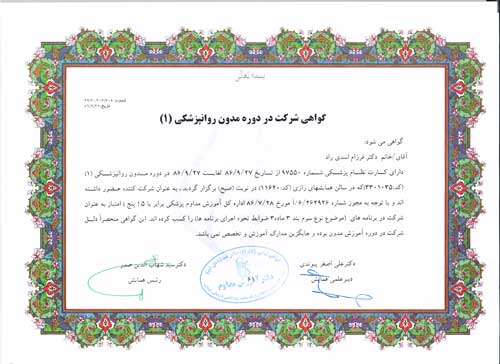 بسمه تعالی
گواهی شرکت در دوره مدون روانپزشکی (۱)
گواهی می شود:
آقای/خانم دکتر فرزام اسدی راد
دارای کارت نظام پزشکی شماره ۹۷۵۵۰ از تاریخ ۸۶/۹/۲۷ لغایت ۸۶/۹/۲۷ در دوره مدون روانپزشکی (۱)
(کد:۳۳۰۱۰۳۵)که در سالن همایشهای رازی (کد:۱۱۶۲۰) در نوبت (صبح) برگزار گردید، به عنوان شرکت کننده حضور داشته
اند و با توجه به مجوز شماره ۶/۲۶۲۹۲۶/آ مورخ ۸۶/۷/۲۸ اداره کل آموزش مداوم پزشکی برابر با ۱۵ پنج) امتیاز به عنوان
شرکت در برنامه های (موضوع نوع سوم بند ۳ ماده۳ ضوابط نحوه اجرای برنامه ها) را کسب کرده اند. این گواهی منحصراً دلیل
شرکت در دوره آموزش مدون بوده و جایگزین مدارک آموزش و تخصص نمی باشد.
دکتر علی اصغر پیوندی
دبیر علمی همایش
دکتر سید شهاب الدین صدر
رئیس همایش